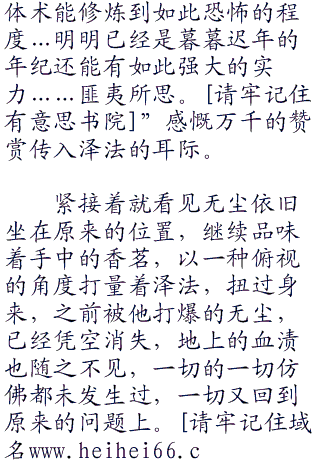 体术能修炼到如此恐怖的程
度…明明已经是暮暮迟年的
年纪还能有如此强大的实
力……匪夷所思。[请牢记住
有意思书院]”感慨万千的赞
赏传入泽法的耳际。
紧接着就看见无尘依旧
坐在原来的位置，继续品味
着手中的香茗，以一种俯视
的角度打量着泽法，扭过身
来，之前被他打爆的无尘，
已经凭空消失，地上的血渍
也随之不见，一切的一切仿
佛都未发生过，一切又回到
原来的问题上。[请牢记住域
名www.heihei66.c